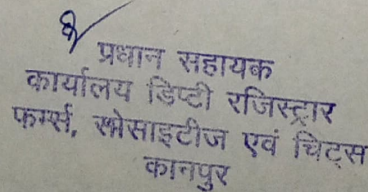 प्रधान सहायक
कार्यालय डिप्टी रजिस्ट्रार
फर्म्स, सोसाइटीज एवं चिट्स
कानपुर